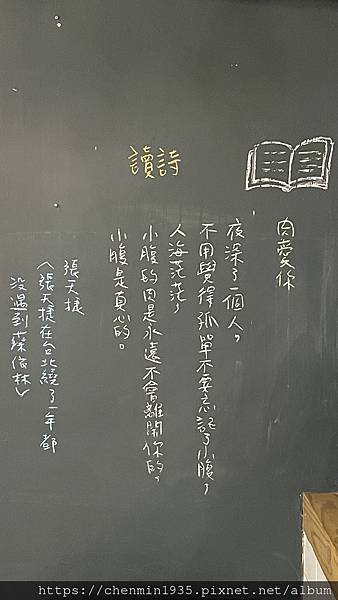 讀詩
肉愛你
夜深了一個人，
不用覺得孤單不要忘記了小腹，
人海茫茫，
小腹的肉是永遠不會離開你的，
小腹是真心的。
張天捷
〈張天捷在台北繞了一年都
沒遇到蔡依林〉
https://chenmin1935.pixnet.net/album